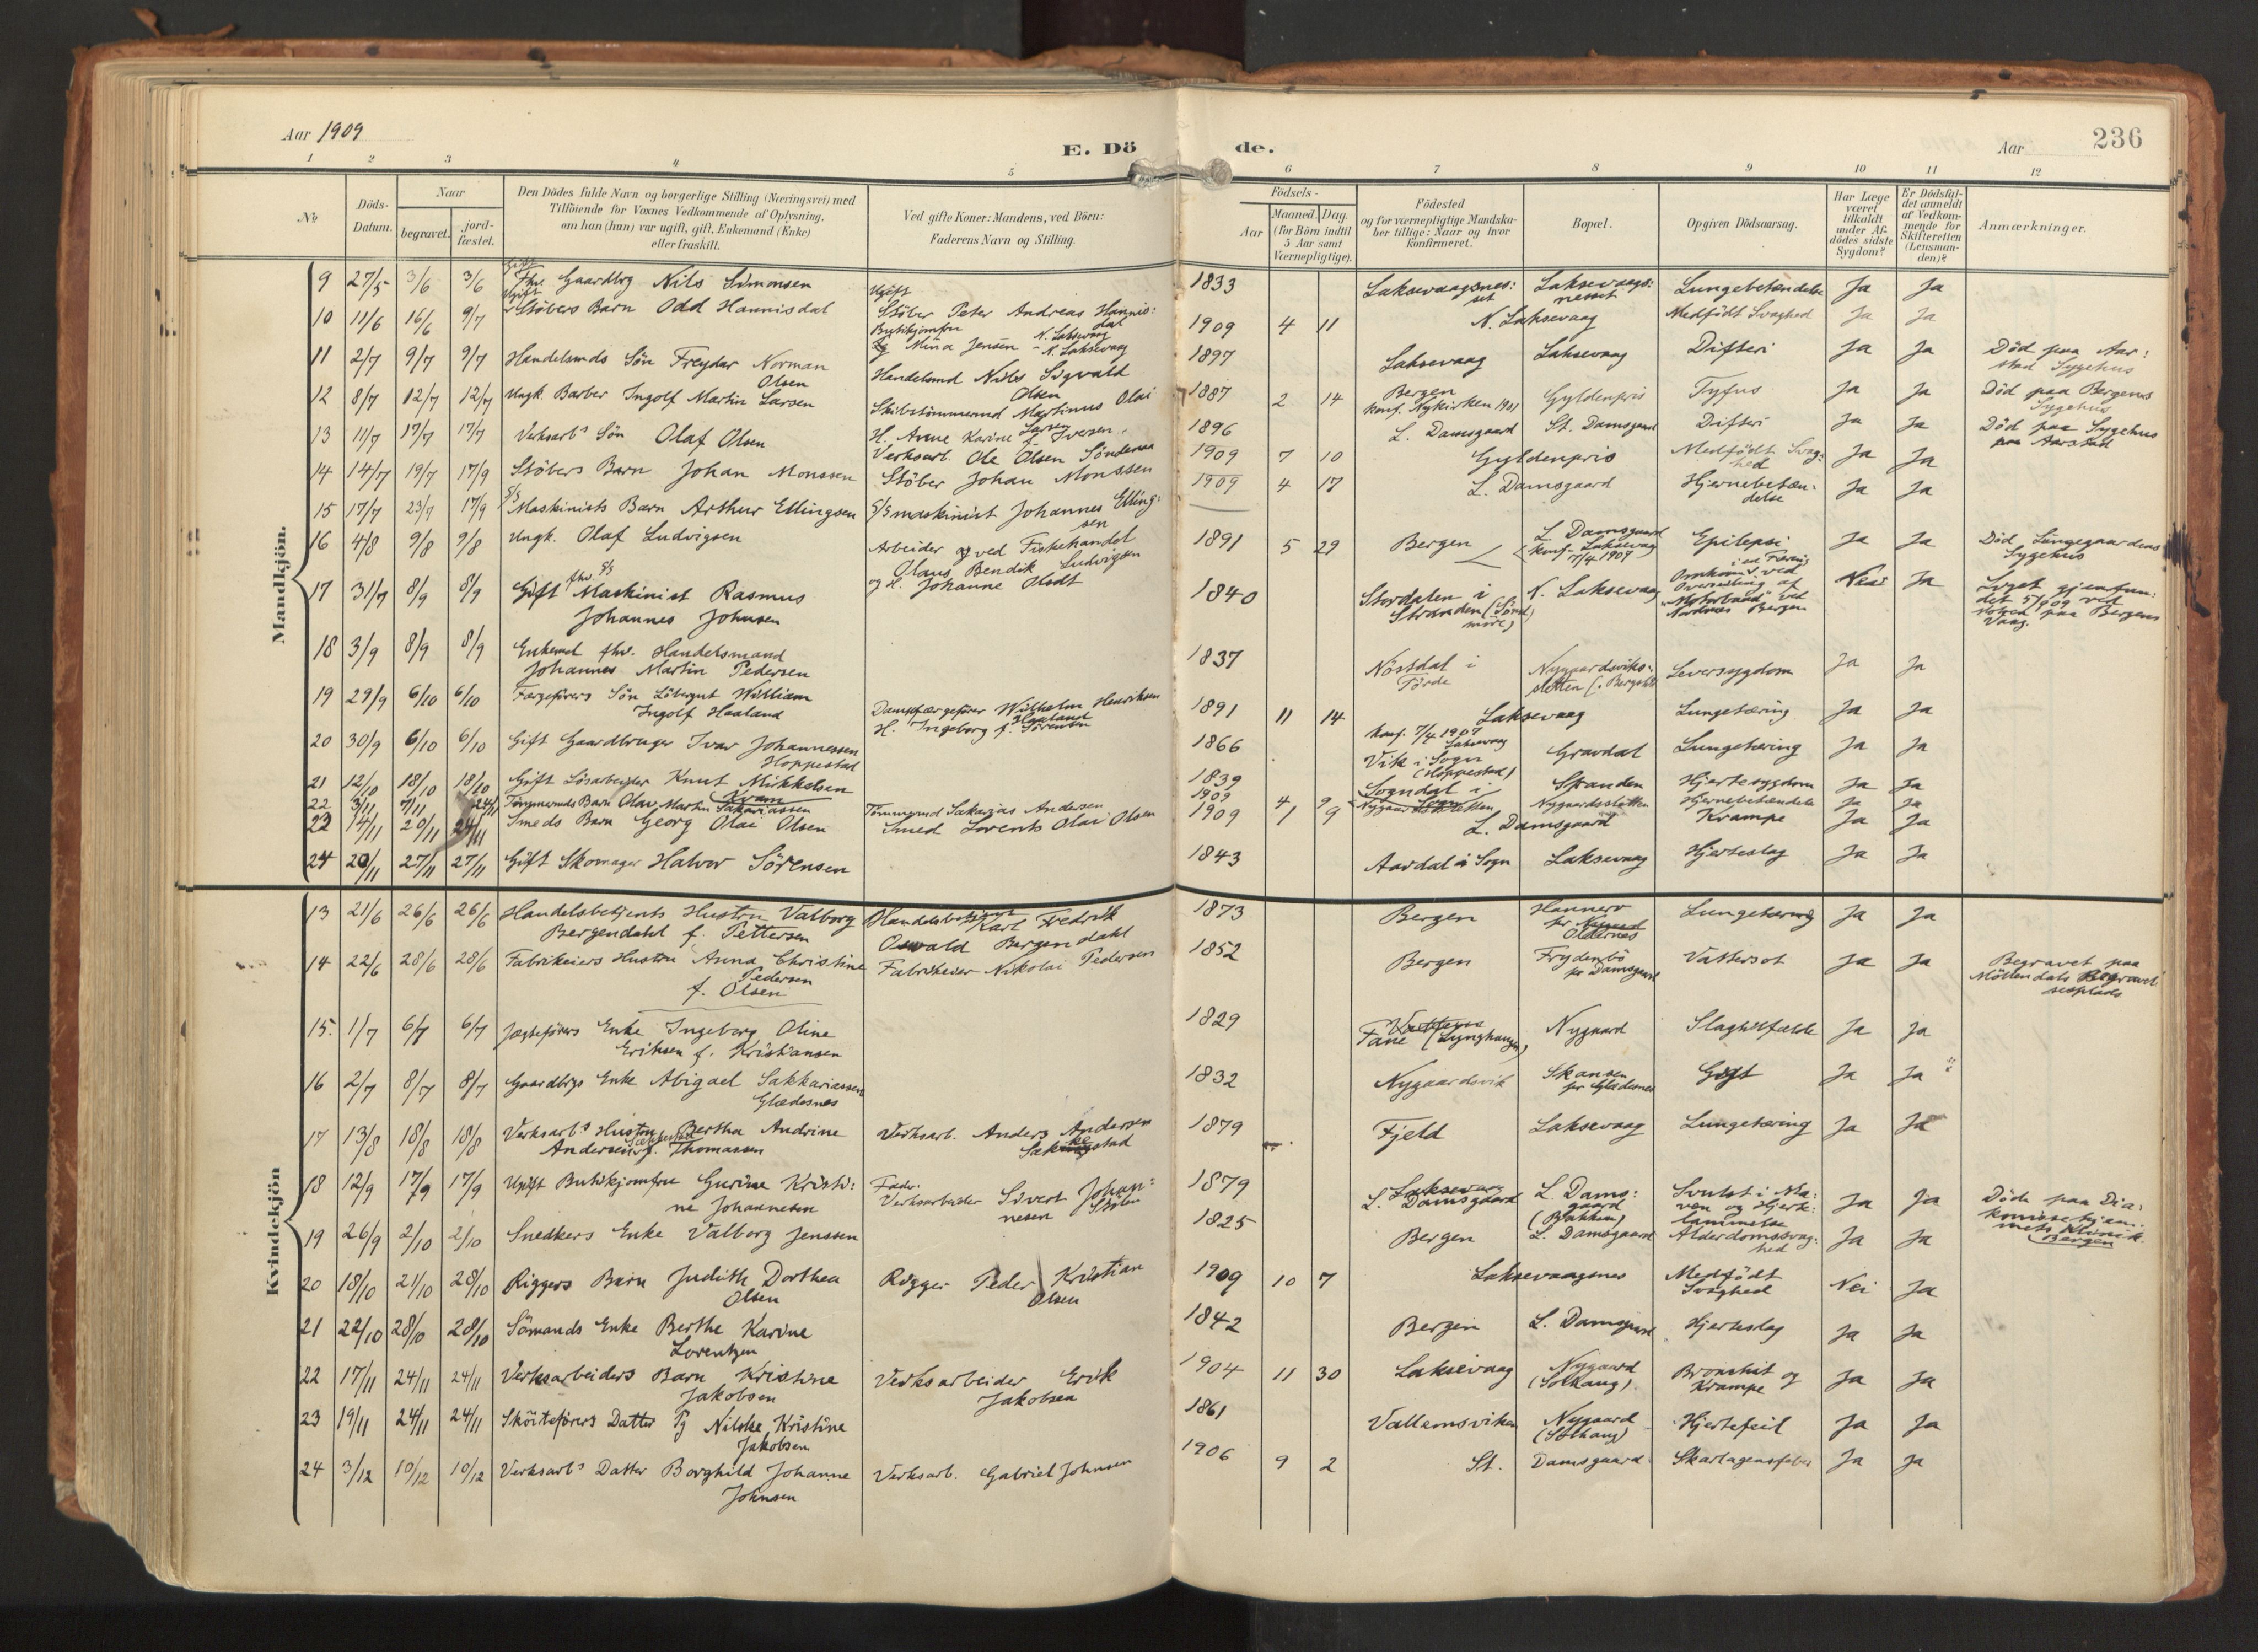 Aar 1909
E. Dö
de.
Aar
236
1 2 3 4 5 6 7 8 9 10 11 12
No
Döds-Datum.
Naar
begravet.
jord-fæstet.
Den Dödes fulde Navn og borgerlige Stilling (Næringsvei) med
Tilföiende for Voxnes Vedkommende af Oplysning,
om han (hun) var ugift, gift, Enkemand (Enke)
eller fraskilt.
Ved gifte Koner: Mandens, ved Börn:
Faderens Navn og Stilling.
Födsels-
Aar
Maaned. Dag.
(for Börn indtil
5 Aar samt
Værnepligtige).
Födested
og for værnepligtige Mandska-
ber tillige: Naar og hvor
konfirmeret.
Bopæl.
Opgiven Dödsaarsag.
Har Læge
været
tilkaldt
under Af-
dödes sidste
Sygdom?
Er Dödsfal-
det anmeldt
af Vedkom-
mende for
Skifteretten
(Lensman-
den)?
Anmærkninger.
Mandkjön.
9 27/5 3/6 3/6 Gift Fhv. Gaardbrg Nils Simonsen 1833 Laksevaagsnes: set Laksevaags: nesset Lungebetændelse Ja Ja
10 11/6 16/6 9/7 Ugift Støbers Barn Odd Hannisdal Ugift Stöber Peter Andreas Hannis: dal N. Laksevaag Butikjomfru Mina Jensen - N. Laksevaag 1909 4 11 N. Laksevaag Medfödt Svaghed Ja Ja
11 2/7 9/7 9/7 Handelsmds Sön Freydar Norman Olsen Handelsmd Nils Sigvald Olsen 1897 Laksevaag Laksevaag Difteri Ja Ja Död paa Aar: stad Sygehus
12 8/7 12/7 12/7 Ungk. Barber Ingolf Martin Larsen Skibstömmermd Martinus Olai Larsen H. Anne Karine f. Iversen. 1887 2 14 Bergen Konf. Nykirken 1901 Gyldenpris Tyfus Ja Ja Död paa Bergens Sygehus
13 11/7 17/7 17/7 Verksarbs Sön Olaf Olsen Verksarb. Ole Olsen Söndenaa 1896 L. Damsgaard St. Damsgaard Difteri Ja Ja Död paa Sygehus paa Aarstad
14 14/7 19/7 17/9 Stöbers Barn Johan Monssen Stöber Johan Monssen 1909 7 10 Gyldenpris Medfödt Svag: hed Ja Ja
15 17/7 23/7 17/9 S/S Maskinists Barn Arthur Ellingsen S/S maskinist Johannes Elling: sen 1909 4 17 L. Damsgaard Hjernebetæn: delse Ja Ja
16 4/8 9/8 9/8 Ungk. Olaf Ludvigsen Arbeider og ved Fiskehandel Olaus Bendik Ludvigsen og H. Johanne Olsdt 1891 5 29 Bergen L. Damsgaard Konf. Laksevaag 7/4 1907 Epilepsi Ja Ja Död Lungegaardens Sygehus
17 31/7 8/9 8/9 Gift fhv. S/S Maskinist Rasmus Johannes Johnsen 1840 Stordalen i Stranden (Sönd möre) N. Laksevaag Omkom ved Overseiling af "Motorbaad" ved Nordnes Bergen Nei Ja Liget gjenfun: det 5/9 09 ved Bergens Vaag.
18 3/9 8/9 8/9 Enkemd fhv. Handelsmand Johannes Martin Pedersen 1837 Nöstdal i Förde Nygaardsviks: sletten Leversygdom Ja Ja
19 29/9 6/10 6/10 Færgeförers Sön Löbergut William Ingolf Haaland Dampfærgeförer Wilhelm Henriksen Haaland H. Ingeborg f. Sörensen 1891 11 14 Laksevaag Konf. 7/4 1907 Laksevaag Lungetæring Ja Ja
20 30/9 6/10 6/10 Gift Gaardbruger Ivar Johannessen Hoppestad 1866 Vik i Sogn (Hoppestad) Gravdal Lungetæring Ja Ja
21 12/10 18/10 18/10 Gift Lösarbeider Knut Mikkelsen Kvam 1839 Sogndal i Sogn Stranden Hjertesygdom Ja Ja
22 3/11 7/11 24/11 Tömmermds Barn Olav Martin Sakariassen Tömmermd Sakarias Andersen 1909 4 9 Nygaardssletten Nygaardssletten Hjernebetændelse Ja Ja
23 14/11 20/11 24/11 Smeds Barn Georg Olai Olsen Smed Lorents Olai Olsen 1909 1 9 L. Damsgaard Krampe Ja Ja
24 20/11 27/11 27/11 Gift Skomager Halvor Sörensen 1843 Aardal i Sogn Laksevaag Hjerteslag Ja Ja
Kvindekjön
13 21/6 26/6 26/6 Handelsbetjents Hustru Valborg Bergendahl f. Pettersen Handelsbetjent Karl Fredrik Oswald Bergendahl 1873 Bergen Hannevo pr Oldernes Lungetæring Ja Ja
14 22/6 28/6 28/6 Fabrikeiers Hustru Anna Christine Pedersen f. Olsen Fabrikeier Nikolai Pedersen 1852 Bergen Frydenbö pr Damsgaard Vattersot Ja Ja Begravet paa Möllendals Begravel sesplads
15. 1/7 6/7 6/7 Jægteförers Enke Ingeborg Oline Eriksen f. Kristiansen 1829 Fane (Lynghaugen) Nygaard Slagtilfælde Ja Ja
16 2/7 8/7 8/7 Gaardbrgs Enke Abigael Sakkariassen Glædesnes 1832 Nygaardsvik Skansen pr Glædesnes Gigt Ja Ja
17 13/8 18/8 18/8 Verksarbs Hustru Bertha Andrine Andersen f. Thomassen Verksarb. Anders Andersen 1879 Fjeld Laksevaag Lungetæring Ja Ja
18 12/9 17/9 17/9 Ugift Butikjomfru Gurine Kristi: ne Johannesen Fader. Verksarbeider Sivert Johan: nesen 1879 L. Damsgaard L. Dams: gaard (Bakken) Svulst i Ma: ven og Hjerte: lammelse Ja Ja Död paa Dia: konissehjem: mets Klinik. Bergen
19 26/9 2/10 2/10 Snedkers Enke Valborg Jenssen 1825 Bergen L. Damsgaard Alderdomssvag: hed Ja Ja
20 18/10 21/10 28/10 Riggers Barn Judith Dorthea Olsen Rigger Peder Kristian Olsen 1909 10 7 Laksevaagsnes Medfödt Svaghed Nei Ja
21 22/10 28/10 28/10 Sömands Enke Berthe Karine Lorentzen 1842 Bergen L. Damsgaard Hjerteslag Ja Ja
22 17/11 24/11 24/11 Verksarbeiders Barn Kristine Jakobsen Verksarbeider Erik Jakobsen 1904 11 30 Laksevaag Nygaard (Solhaug). Bronchit og Krampe Ja Ja
23 19/11 24/11 24/11 Sköiteförers Datter Pg Nilske Kristine Jakobsen 1861 Vallemsviken Nygaard (Solhaug) Hjertefeil Ja Ja
24 3/12 10/12 10/12 Verksarbs Datter Borghild Johanne Johnsen Verksarb. Gabriel Johnsen 1906 9 2 St. Damsgaard Skarlagensfeber Ja Ja